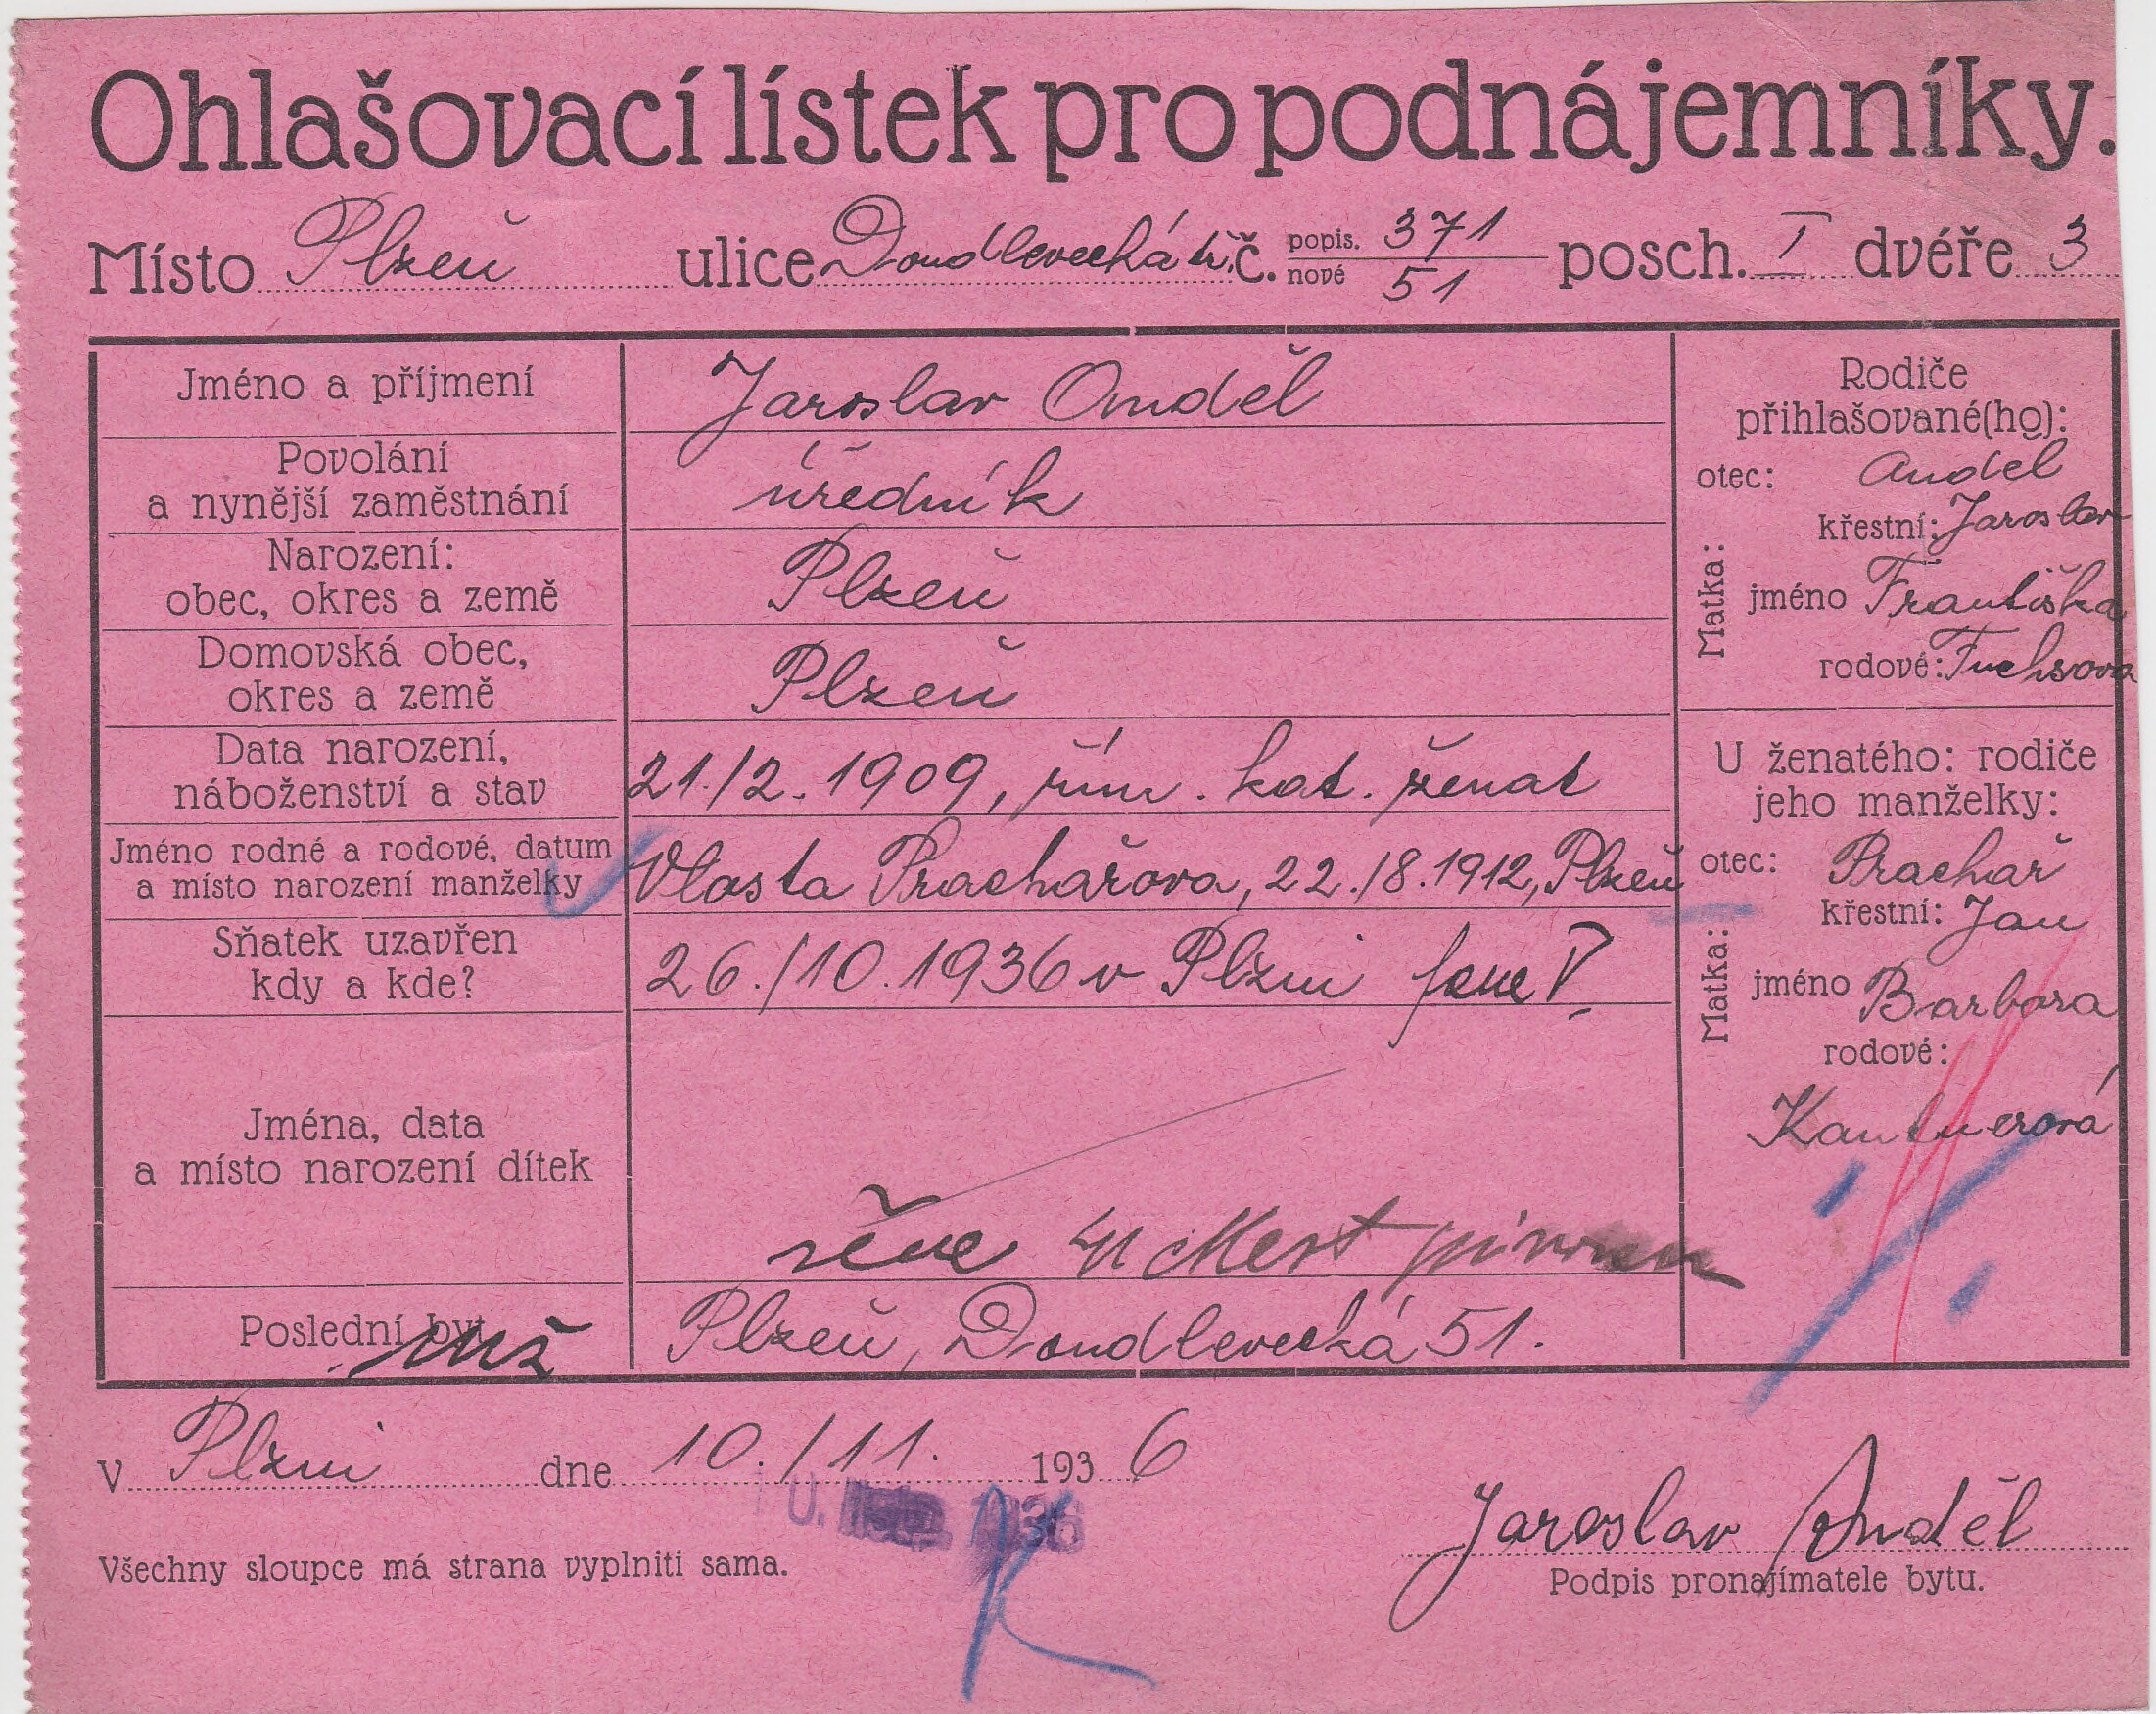 Ohlašovací lístek pro podnájemníky.
Místo Plzeň ulice Doudlevecká tř. č. popis. 371 nové 51 posch. I dvéře 3
Jméno a příjmení Jaroslav Anděl
Povolání
a nynější zaměstnání úředník
Narození:
obec, okres a země Plzeň
Domovská obec,
okres a země Plzeň
Data narození,
náboženství a stav 21./2. 1909, řím. kat. ženat
Jméno rodné a rodové, datum
a místo narození manželky Vlasta Prachařova, 22./8. 1912, Plzeň
Sňatek uzavřen
kdy a kde? 26./10. 1936 v Plzni
Jména, data
a místo narození dítek
Poslední byt Plzeň, Doudlevecká 51.
Rodiče
přihlašované(ho):
otec: Anděl
křestní: Jaroslav
Matka:
jméno Františka
rodové: Fuchsova
U ženatého: rodiče
jeho manželky:
otec: Prachař
křestní: Jan
Matka:
jméno Barbora
rodové:
Kantnerová
v Plzni dne 10./11. 1936
Jaroslav Anděl
Všechny sloupce má strana vyplniti sama.
Podpis pronajímatele bytu.